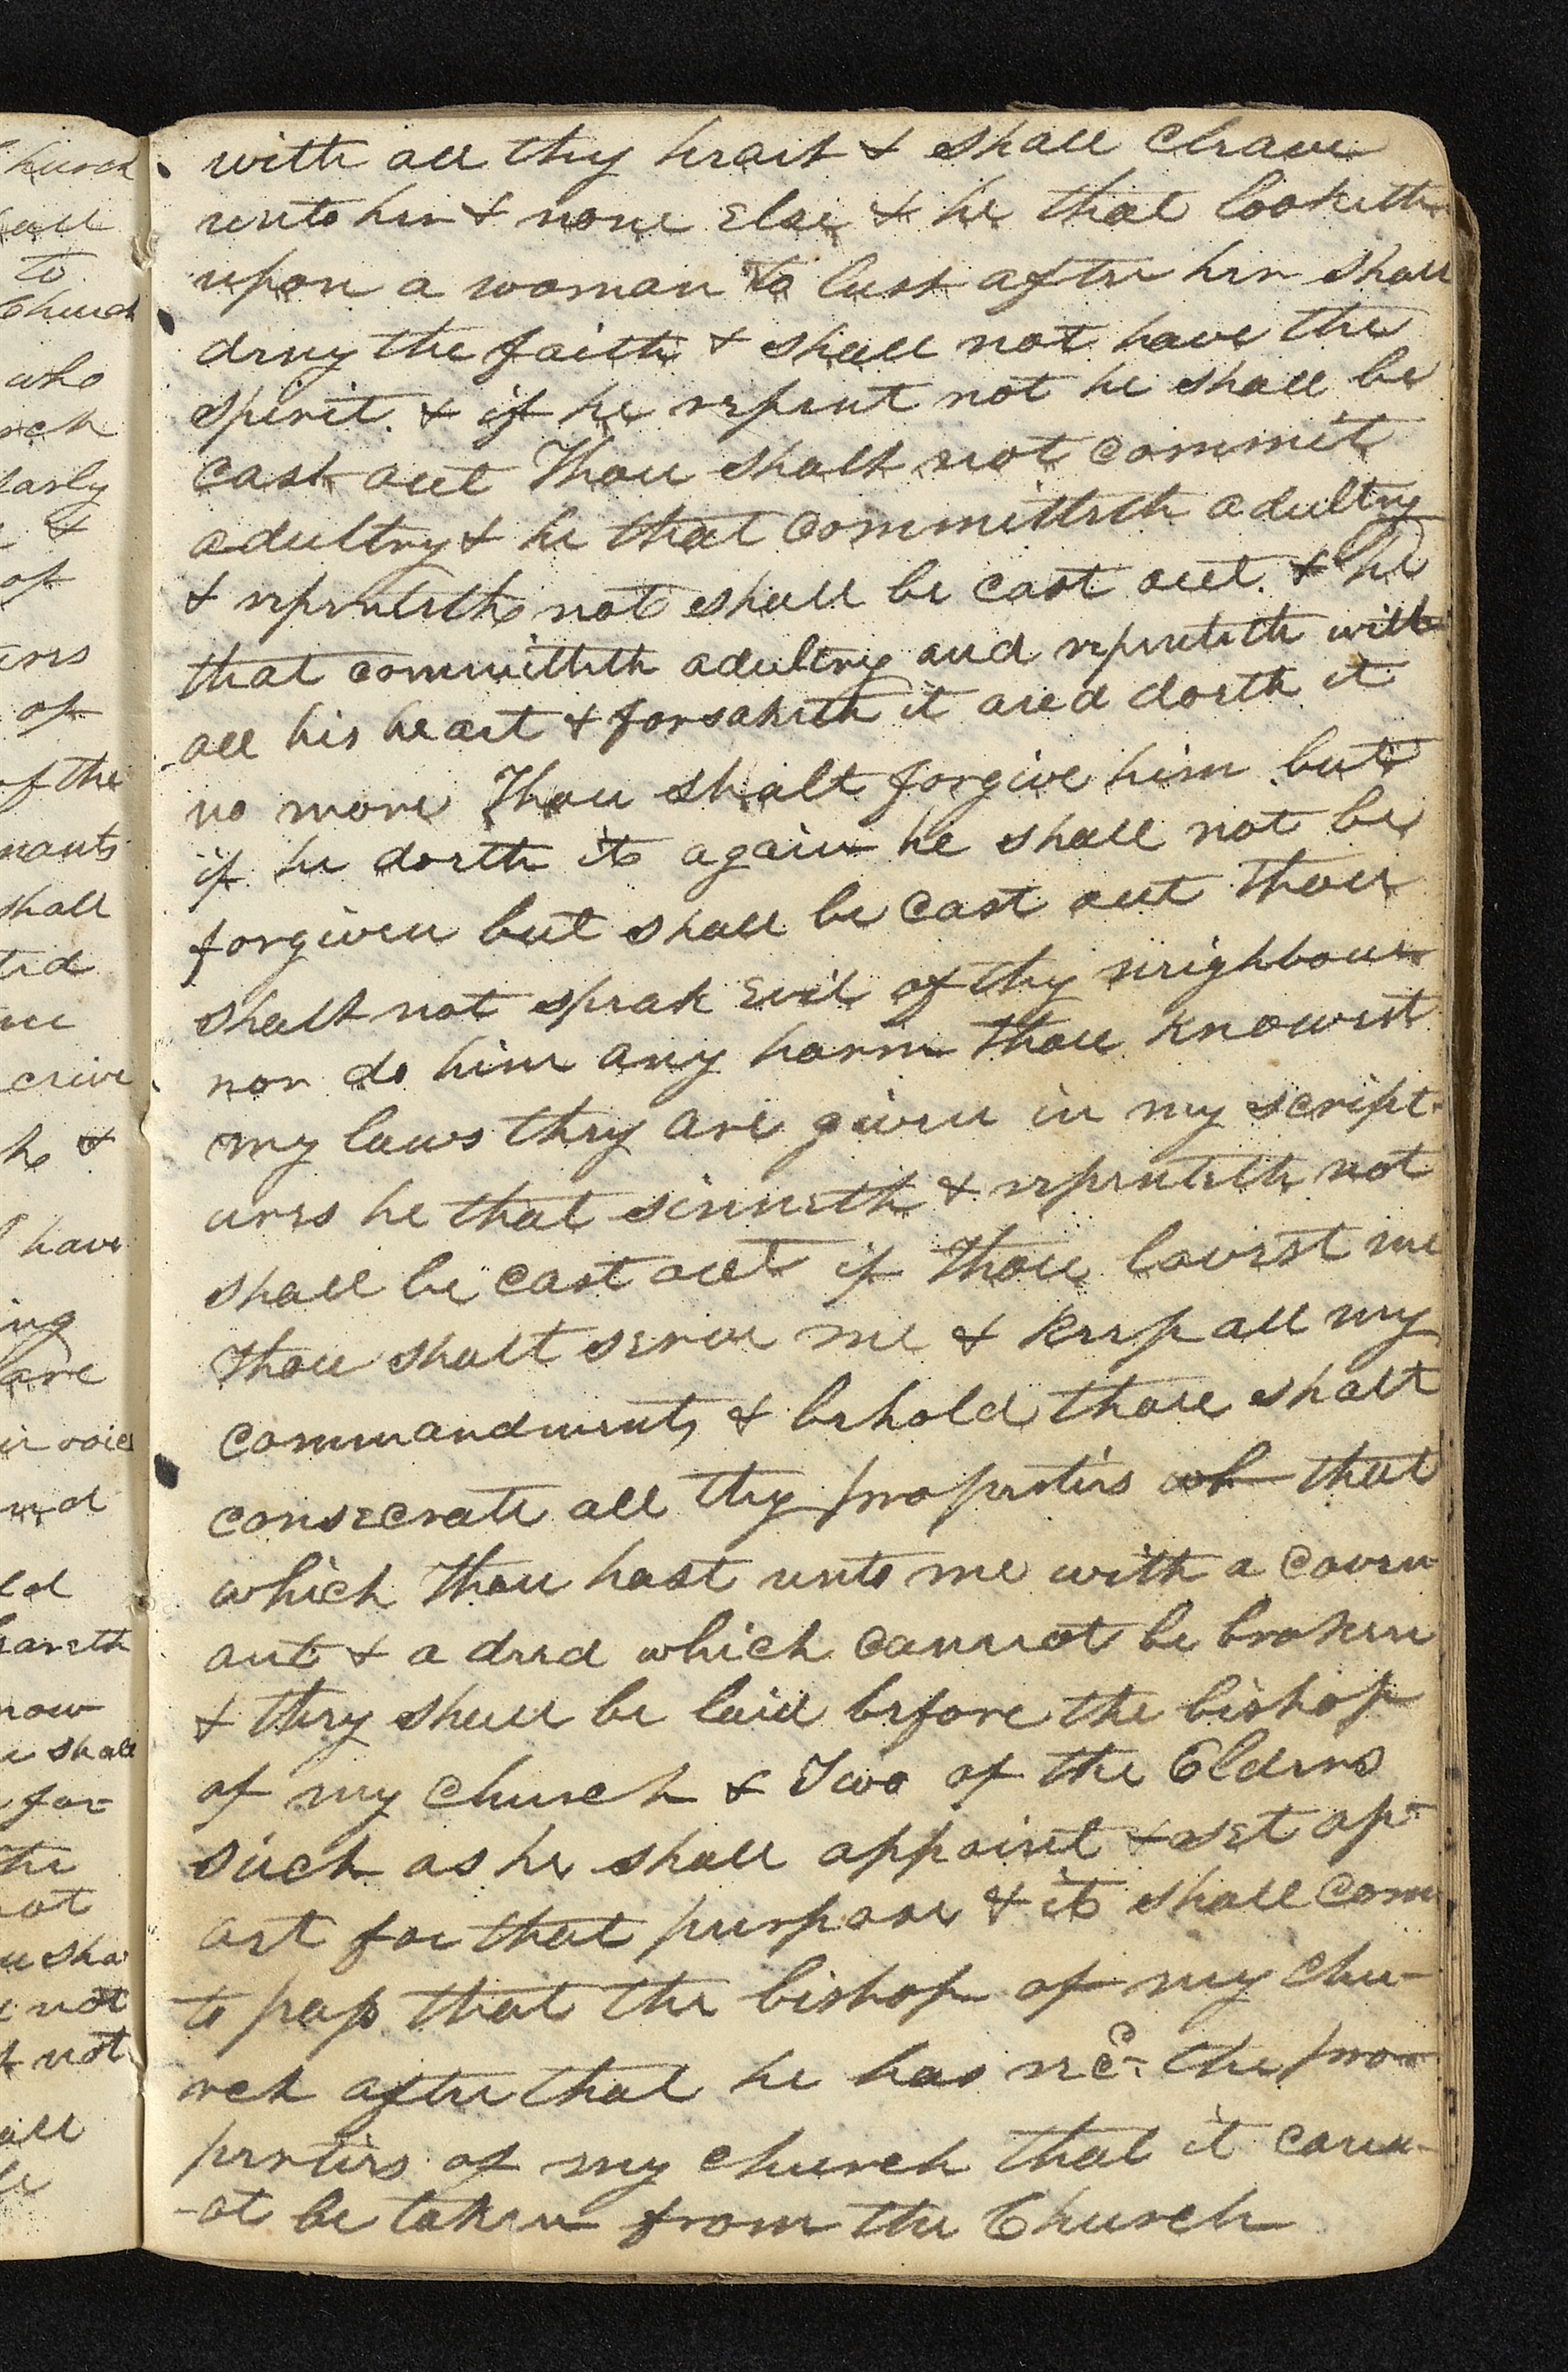 hurch
all
to
Church
who
rch
larly
&
of
ures
of
of the
nants
shall
ted
ceive
h &
have
ing
are
ir voice
eareth
now
e shall
for
the
not
u sha
not
t not
all
with all thy heart & shall cleave
unto her & none else & he that looketh
upon a woman to lust after her shall
deny the faith & shall not have the
spirit. & if he repent not he shall be
cast out Thou shalt not commit
adultry & he that committeth adultry
& repenteth not shall be cast out. & he
that committeth adultry and repenteth with
all his heart & forsaketh it and doeth it
no more Thou shalt forgive him but
if he doeth it again he shall not be
forgiven but shall be cast out thou
shalt not speak evil of thy neighbour
nor do him any harm thou knowest
my laws they are given in my script-
ures he that sinneth & repenteth not
shall be cast out if thou lovest me
thou shalt serve me & keep all my
commandments & behold thou shalt
consecrate all thy properties wh that
which thou hast unto me with a coven
ant & a deed which cannot be broken
& they shall be laid before the bishop
of my church & Two of the Elders
such as he shall appoint & set ap-
art for that purpose & it shall come
to pass that the bishop of my chu-
rch after that he has rec. the pro-
perties of my church that it cann-
-ot be taken from the Church